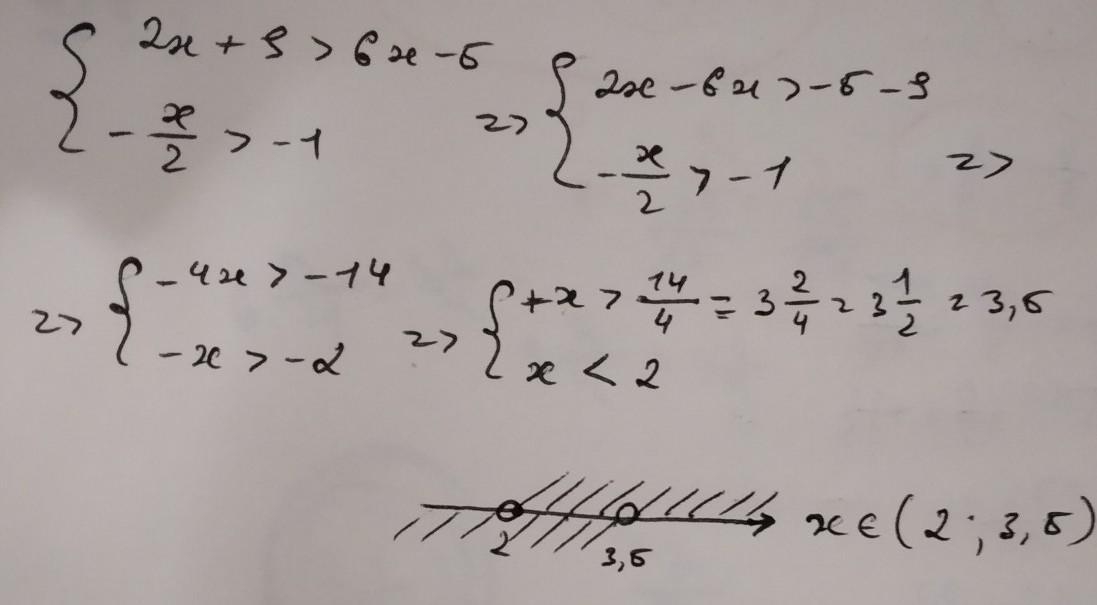 { 2x + 9 > 6x - 5
-x/2 > -1
=> { 2x - 6x > -5 - 9
-x/2 > -1 =>
=> { -4x > -14
-x > -2
=> { +x > 14/4 = 3 2/4 = 3 1/2 = 3,5
x < 2
2 3,5 x ∈ (2 ; 3,5)